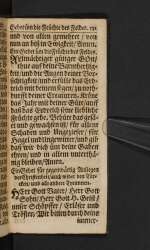 Gebet um die Früchte des Feldes. 191
und von allen gemehret / von
nun an biß in Ewigkeit / Amen.
Ein Gebet um die Früchte des Feldes.
Allmächtiger gütiger Gott
thue auf deine Barmhertzig-
und die Augen deiner Vor-
sichtigkeit / und erfülle
mit deinem Segen / zu noth-
durfft deiner Creaturen. Kröne
das Jahr mit deiner Güte / auf
daß das Erdreich seine liebliche
Früchte gebe. Behüte das
und für allen
Schaden und Ungeziefer / für
Hagel und Ungewitter / und
wir dich um deine Gaben
ehren / und in allem unterthä-
bleiben / Amen.
Ein Gebet für gegenwärtig Anliegen
der Christenheit / auch wider den Tür-
cken / und alle andere Tyrannen.
HErr Gott Vater / Herr Gott
Sohn / Herr Gott H. Geist /
unser Schöpffer / Erlöser und
Tröster / Wir bitten durch deine